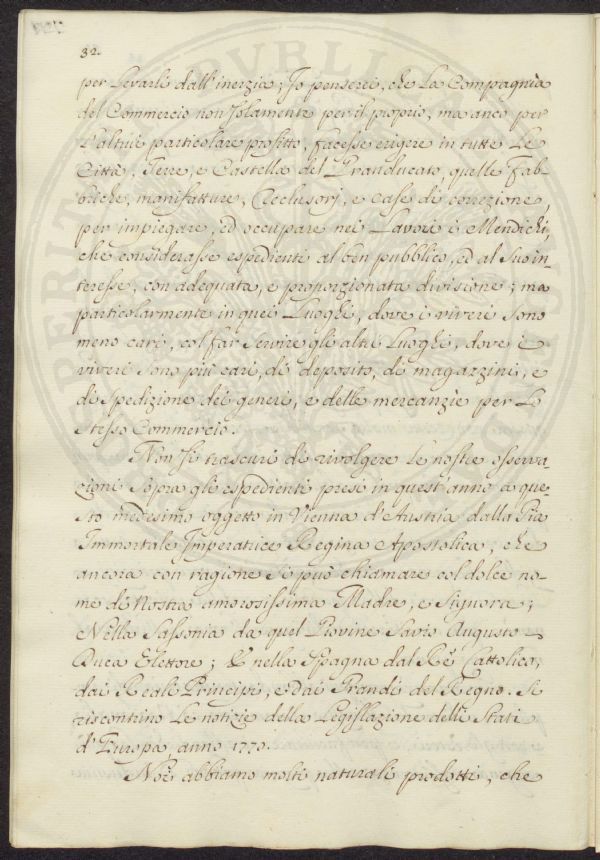 32.
per levarli dall'inerzia; Jo penserei, che la Compagnia
del Commercio non solamente per il proprio, ma anco per
l'altrui particolare profitto, facesse erigere in tutte le
Città, Terre, e Castella del Granducato, quelle Fab-
briche, manifatture, Reclusorj, e case di correzione,
per impiegare, ed occupare nei Lavori i Mendichi,
che considerasse espedienti al ben pubblico, ed al suo in-
teresse, con adequata, e proporzionata divisione; ma
particolarmente in quei Luoghi, dove i viveri sono
meno cari, col far servire gli altri Luoghi, dove i
viveri sono più cari, di deposito, di magazzini, e
di spedizione dei generi, e delle mercanzie per lo
stesso Commercio.
Non si trascuri di rivolgere le nostre osserva-
zioni sopra gli espedienti presi in quest'anno a que-
sto medesimo oggetto in Vienna d'Austria dalla Pia
Immortale Imperatrice Regina Apostolica, che
ancora con ragione si può chiamare col dolce no-
me di Nostra amorosissima Madre, e Signora;
Nella Sassonia da quel Giovine Savio Augusto
Duca Elettore; E nella Spagna dal Rè Cattolico,
dai Reali Principi, e dai Grandi del Regno. Si
riscontrino le notizie della Legislazione delli Stati
d'Europa anno 1770.
Noi abbiamo molti naturali prodotti, che